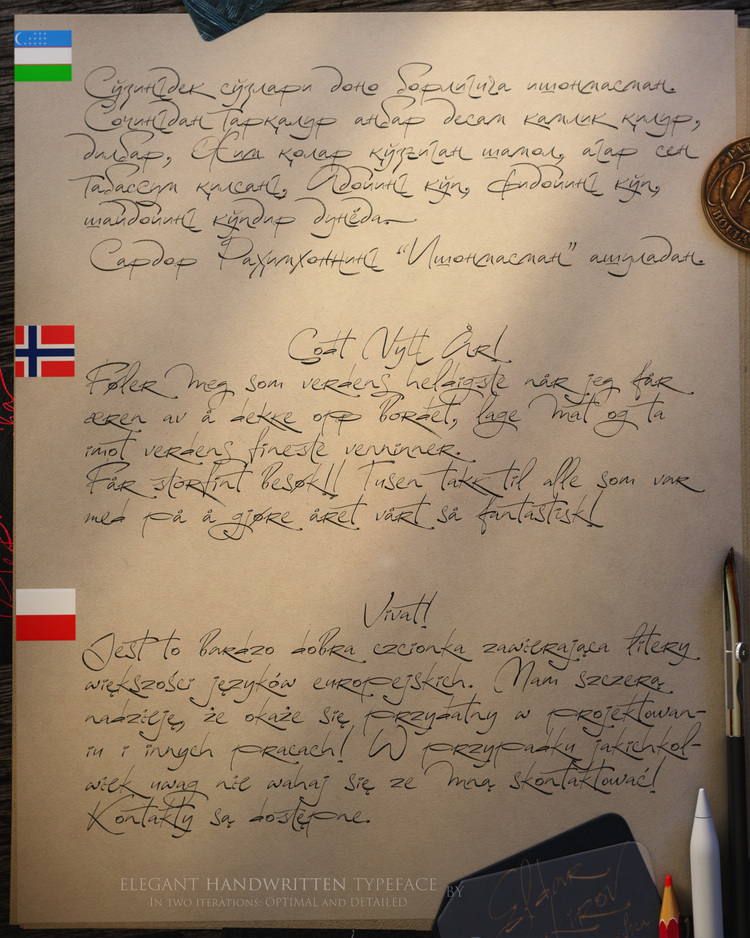 Сўзингдек сўзлари доно борлигига ишонмасман.
Сочингдан тарқалур анбар десам камлик қилур,
дилбар, Жим қолар қўзғиган шамол, агар сен
Табассум қилсанг, Адойинг кўп, фидойинг кўп,
шайдойинг кўпдир дунёда.
Сардор Раҳимхоннинг “Ишонмасман” ашуладан.
Godt Nytt År!
Føler meg som verdens heldigste når jeg får
æren av å dekke opp bordet, lage mat og ta
imot verdens fineste venninner.
Får storfint besøk!! Tusen takk til alle som var
med på å gjøre året vårt så fantastisk!
Vivat!
Jest to bardzo dobra czcionka zawierająca litery
większości języków europejskich. Mam szczerą
nadzieję, że okaże się przydatny w projektowan-
iu i innych pracach! W przypadku jakichkol-
wiek uwag nie wahaj się ze mną skontaktować!
Kontakty są dostępne.
ELEGANT HANDWRITTEN TYPEFACE BY
IN TWO ITERATIONS: OPTIMAL AND DETAILED